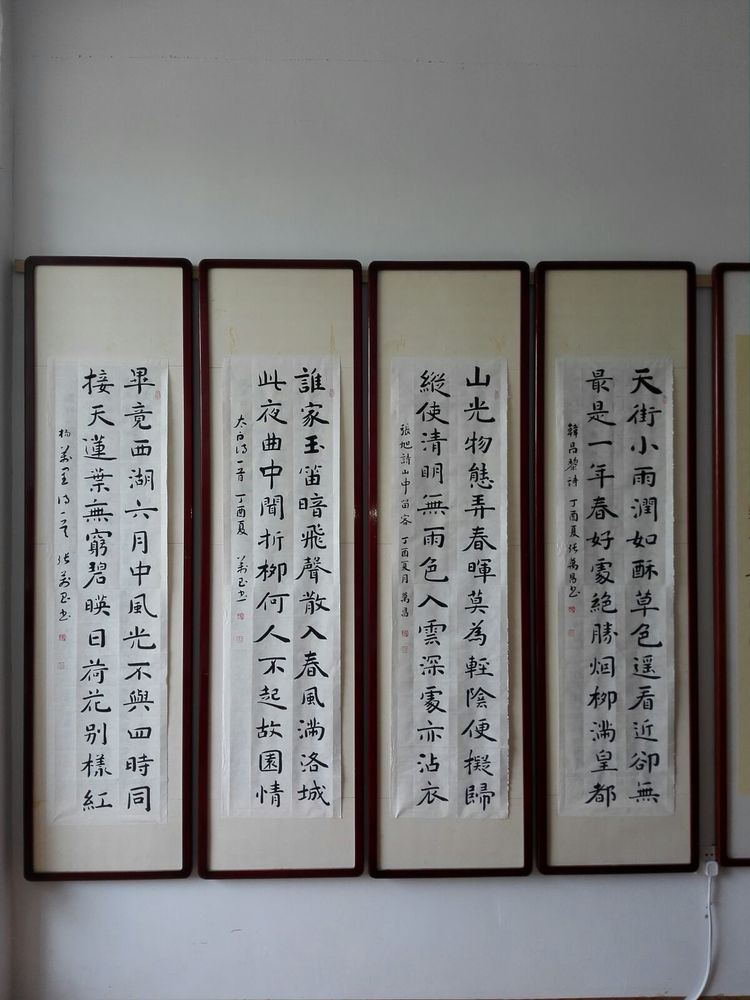 天街小雨潤如酥草色遥看近卻無
最是一年春好處絶勝烟柳滿皇都
韓昌黎詩 丁酉夏張萬昌书
山光物態弄春暉莫為輕陰便擬歸
縱使清明無雨色入雲深處亦沾衣
張旭詩山中留客 丁酉夏月 萬昌
誰家玉笛暗飛聲散入春風滿洛城
此夜曲中聞折柳何人不起故園情
太白詩一首 丁酉夏
畢竟西湖六月中風光不與四時同
接天蓮葉無窮碧映日荷花别樣紅
楊萬里詩一首